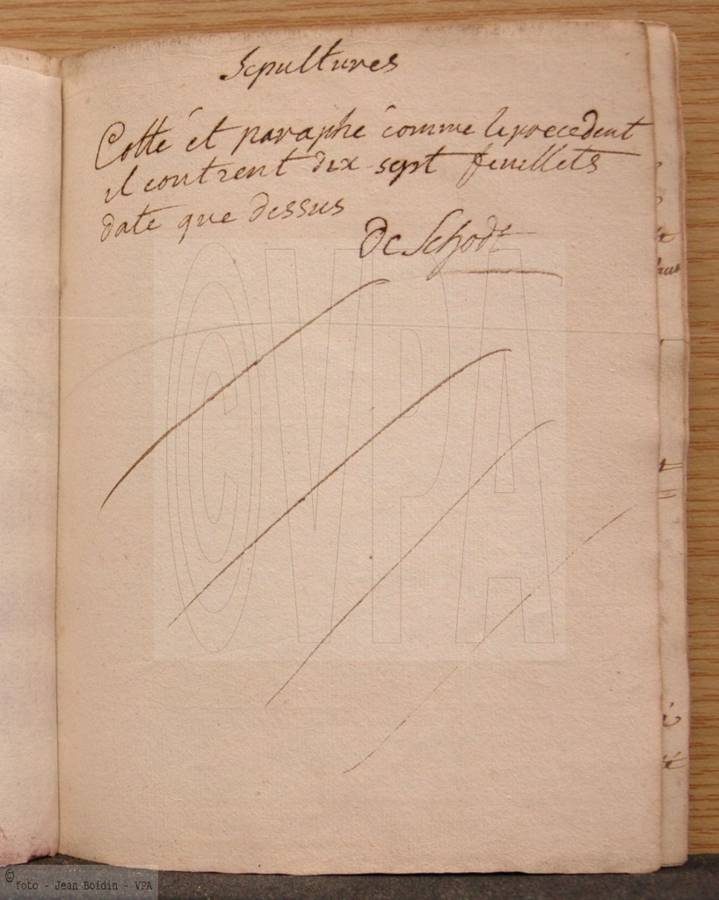 Sepultures
Cotté et paraphé comme le precedent
il contient dix sept feuillets
date que dessus
De Schodt
©VPA
© foto - Jean Boidin - VPA